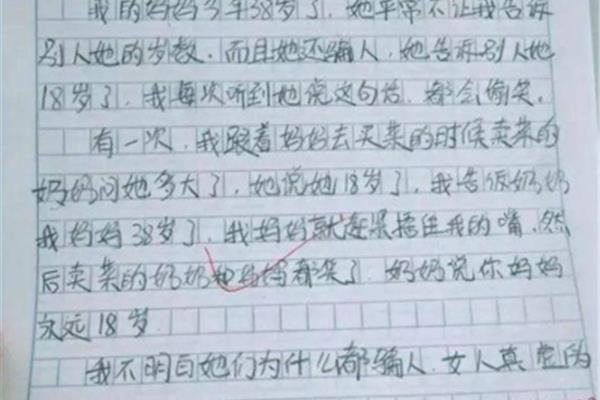 我的妈妈今年38岁了，她平常不让我告诉
别人她的岁数，而且她还骗人，她告诉别人她
18岁了，我每次听到她说这句话，都会偷笑。
有一次，我跟着妈妈去买菜的时候卖菜的
奶奶问她多大了，她说她18岁了，我告饭奶奶
我妈妈38岁了，我妈妈就赶紧捂住我的嘴，然
后卖菜的奶奶和妈妈都笑了，奶奶说你妈妈
永远18岁
我不明白她们为什么都骗人，女人真虚伪